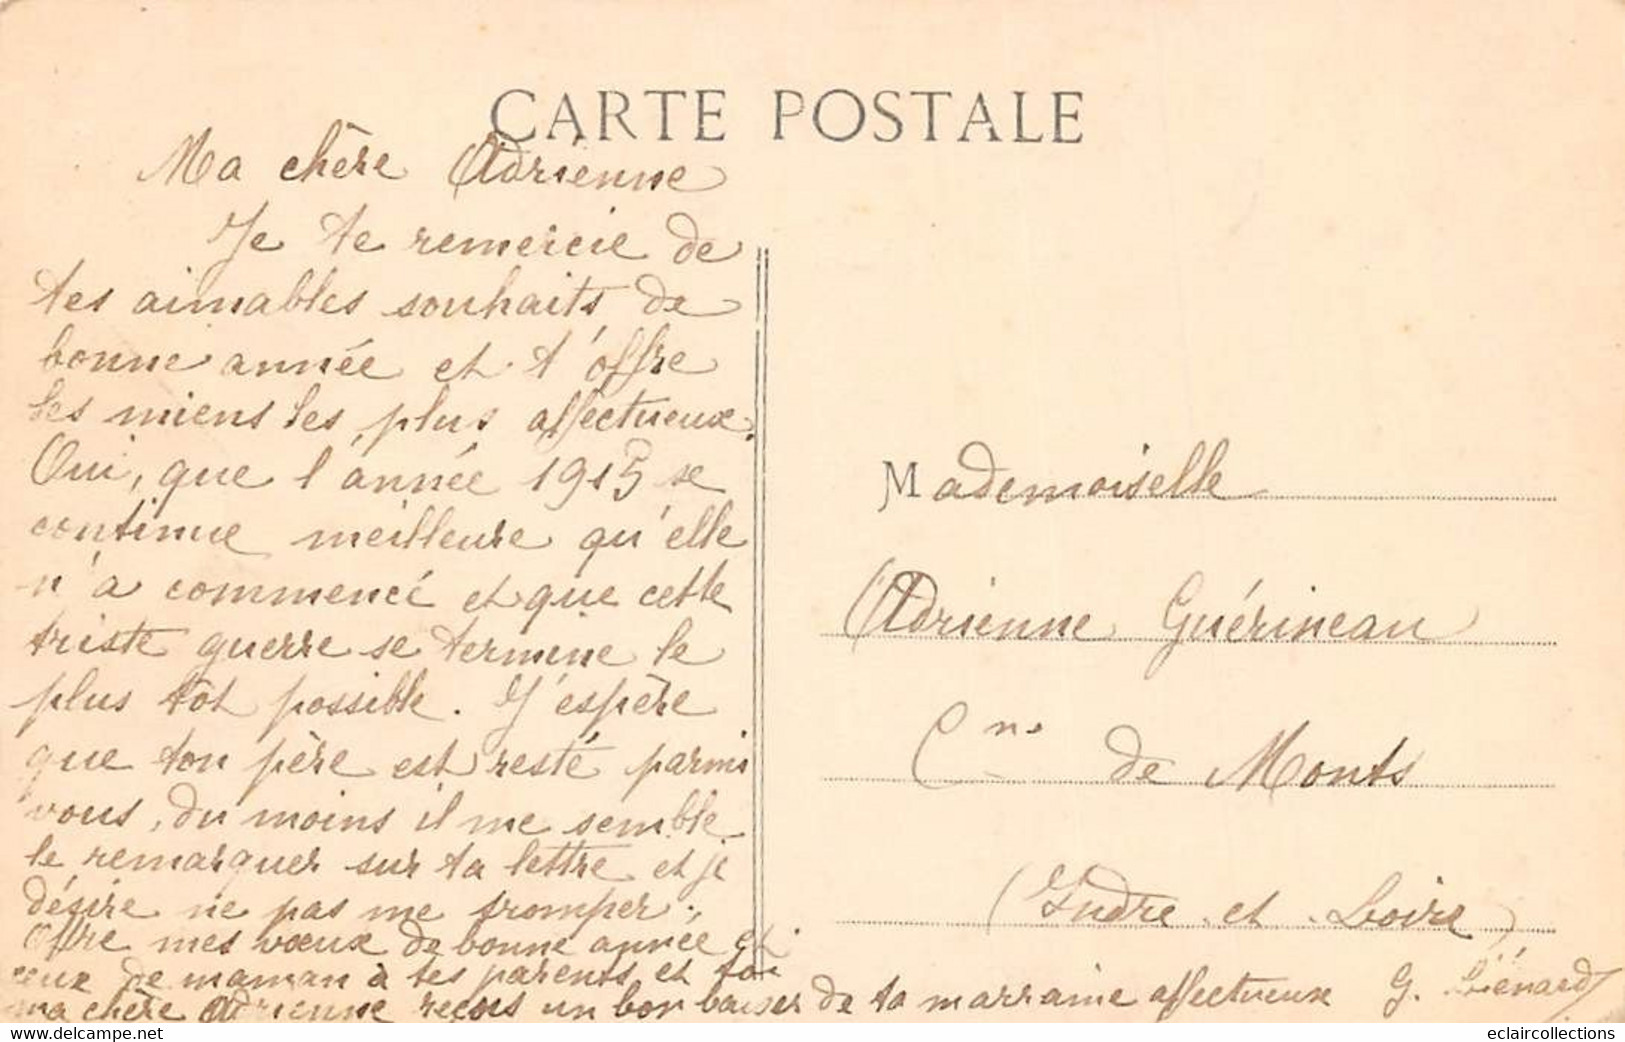 CARTE POSTALE
Ma chère Adrienne
Je te remercie de
tes aimables souhaits de
bonne année et t'offre
les miens les plus affectueux.
Oui, que l'année 1915 se
continue meilleure qu'elle
n'a commencé et que cette
triste guerre se termine le
plus tôt possible. J'espère
que ton père est resté parmi
vous, du moins il me semble
le remarquer sur ta lettre et je
désire ne pas me tromper.
Offre mes vœux de bonne année et
ceux de maman à tes parents et toi
ma chère Adrienne reçois un bon baiser de ta marraine affectueux G. Liénard
Mademoiselle
Adrienne Guérineau
Cne de Monts
(Indre et Loire)
eclaircollections